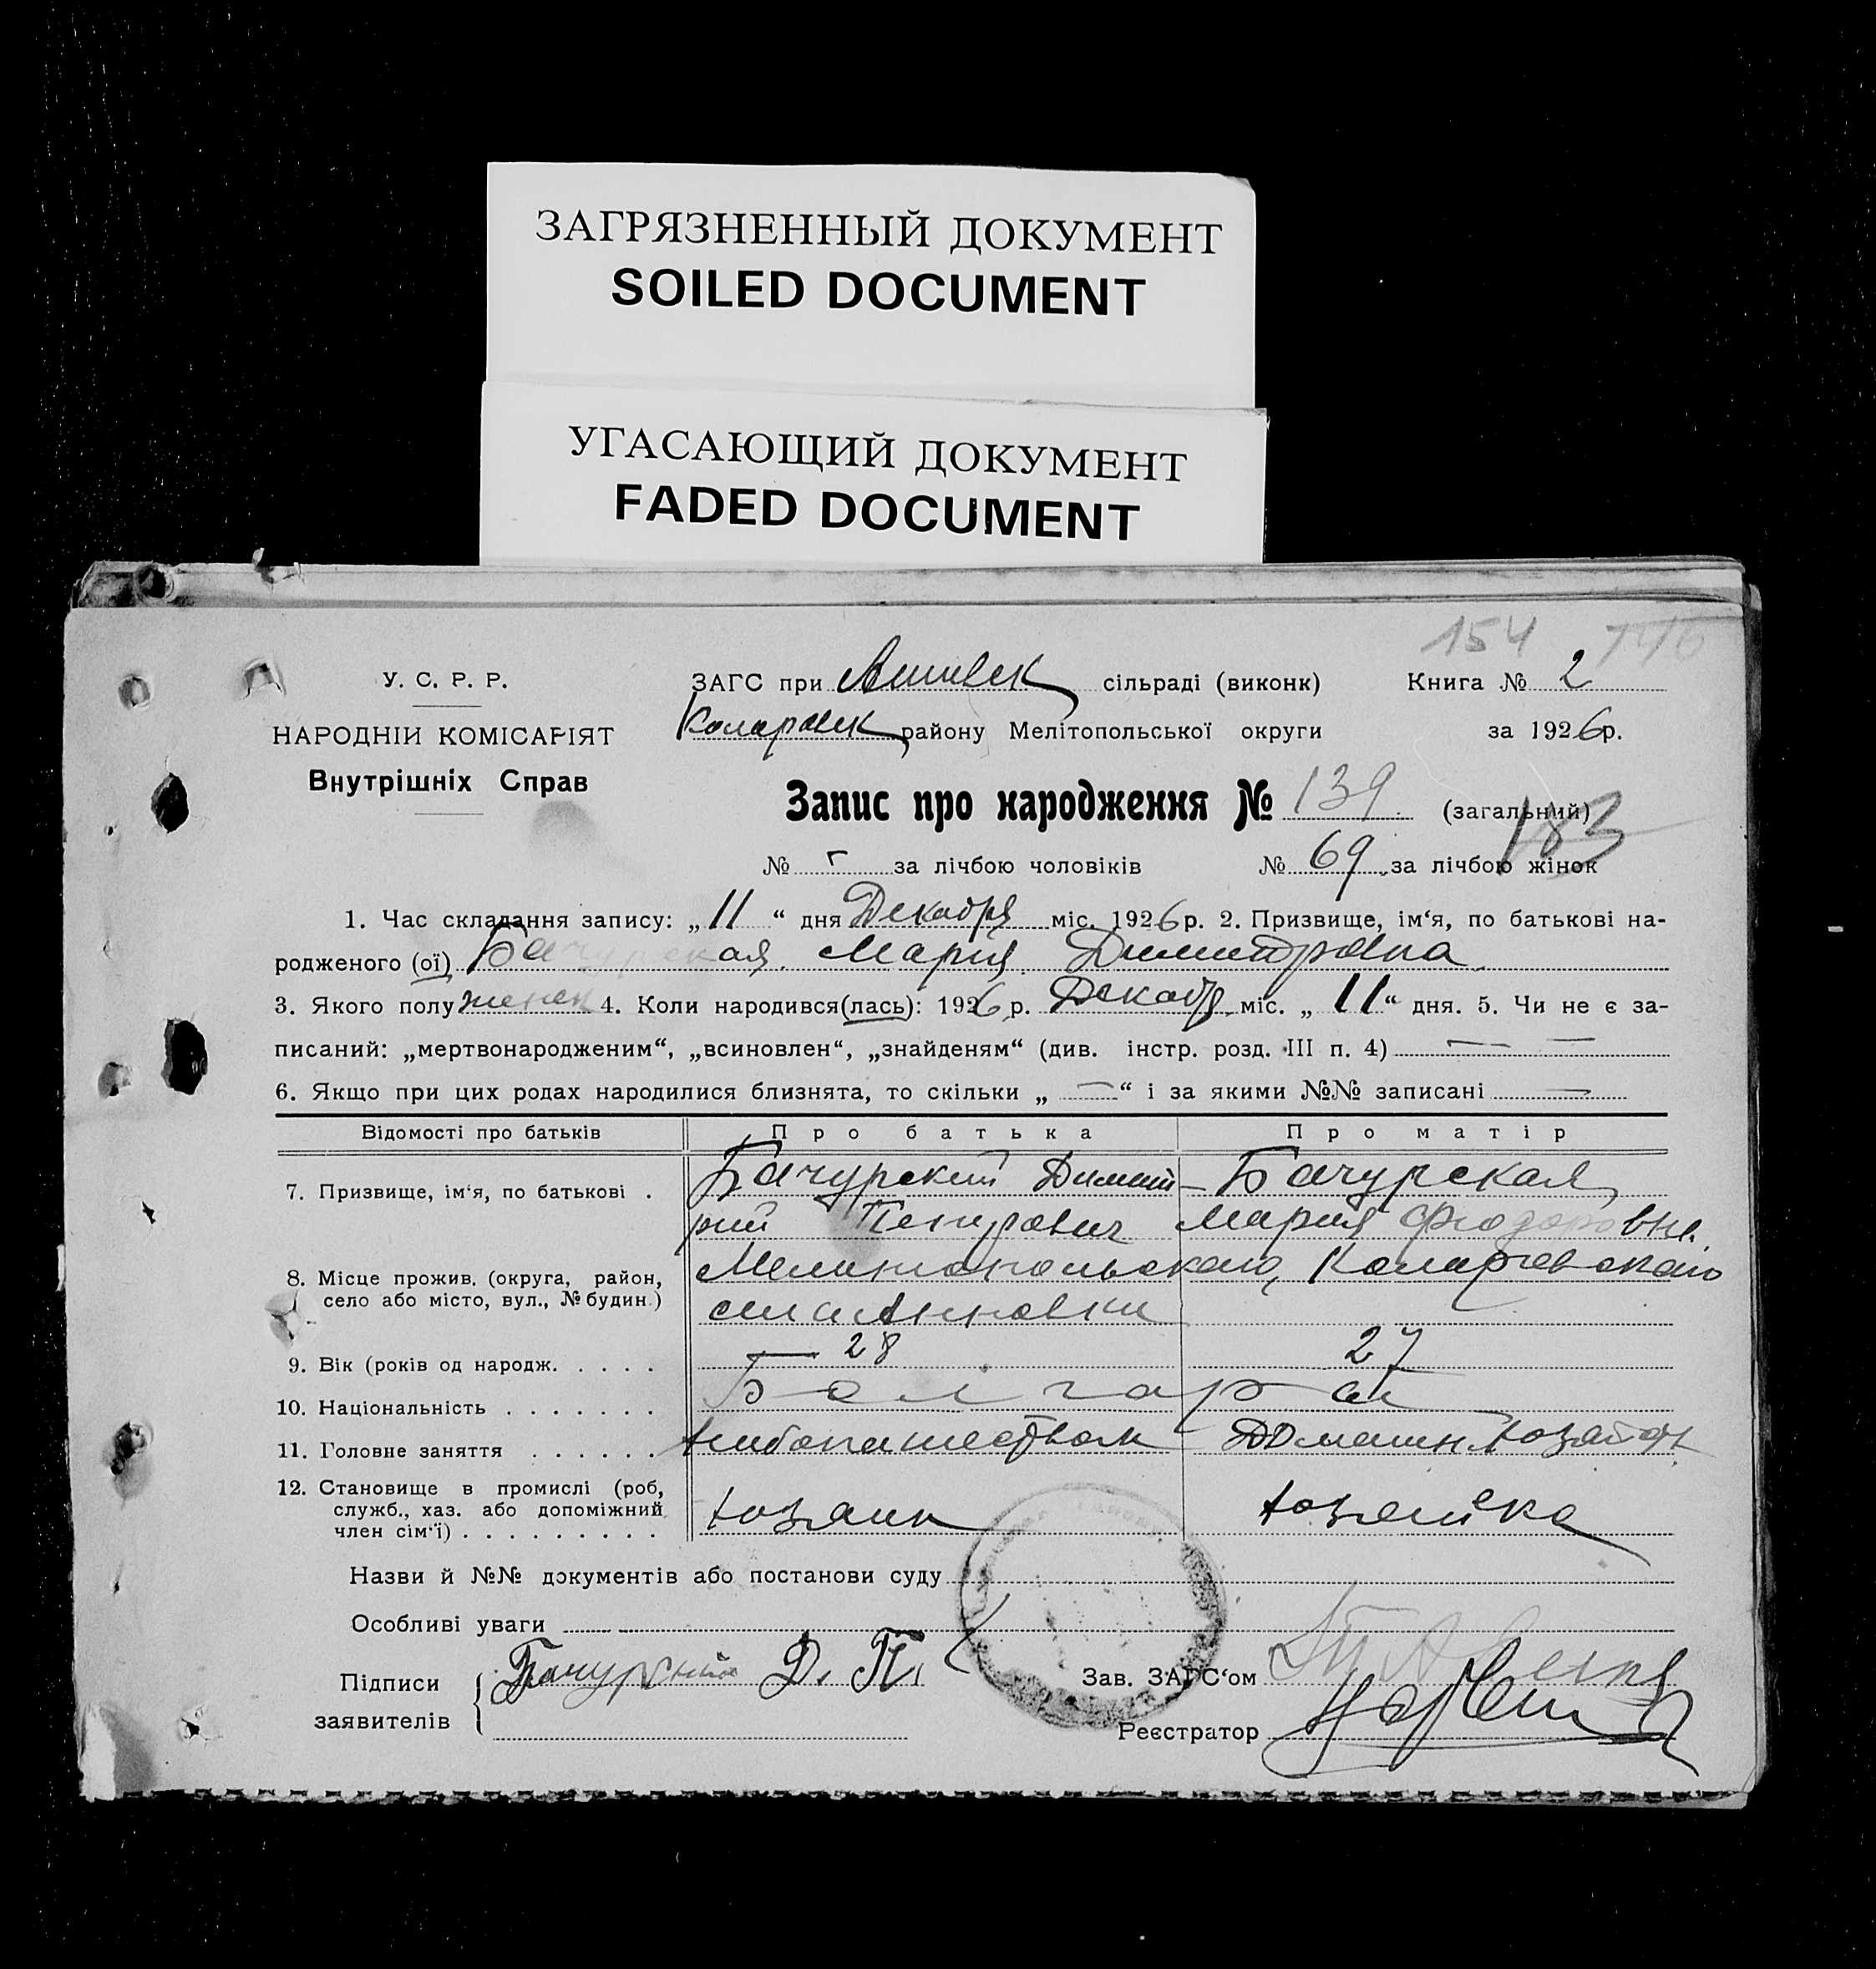 ЗАГРЯЗНЕННЫЙ ДОКУМЕНТ
SOILED DOCUMENT
УГАСАЮЩИЙ ДОКУМЕНТ
FADED DOCUMENT
154 746
У. С. Р. Р.
НАРОДНІЙ КОМІСАРІЯТ
Внутрішніх Справ
ЗАГС при сільраді (виконк) Книга № 2
Коларовск району Мелітопольської округи за 1926р.
Запис про народження № 139 (загальний)
183
№ за лічбою чоловіків № 69 за лічбою жінок
1. Час складання запису: „11“ дня Декабря міс. 1926 р. 2. Призвище, ім'я, по батькові на-
родженого (ої) Бачурская Мария Димитровна
3. Якого полу женск 4. Коли народився(лась): 1926 р. Декабр міс. „11“ дня. 5. Чи не є за-
писаний: „мертвонародженим“, „всиновлен“, „знайденям“ (див. інстр. розд. III п. 4) — —
6. Якщо при цих родах народилися близнята, то скільки „—“ і за якими №№ записані —
Відомості про батьків Про батька Про матір
7. Призвище, ім'я, по батькові . Бачурский Димит- Бачурская
рий Петрович Мария Фиодоровна
8. Місце прожив. (округа, район, село або місто, вул., № будин.) Мелитопольского, Коларовского
села Анновки
9. Вік (років од народж. . . . . — 28 27
10. Національність . . . . . . . Болгары
11. Головне заняття . . . . . . хлибопашеством Домашн хозяйств
12. Становище в промислі (роб, служб., хаз. або допоміжний член сім'ї) . . . . . . . . . хозяин хозяйка
Назви й №№ документів або постанови суду
Особливі уваги
Підписи заявителів Бачурский Д. П.
Зав. ЗАГС'ом
Реєстратор